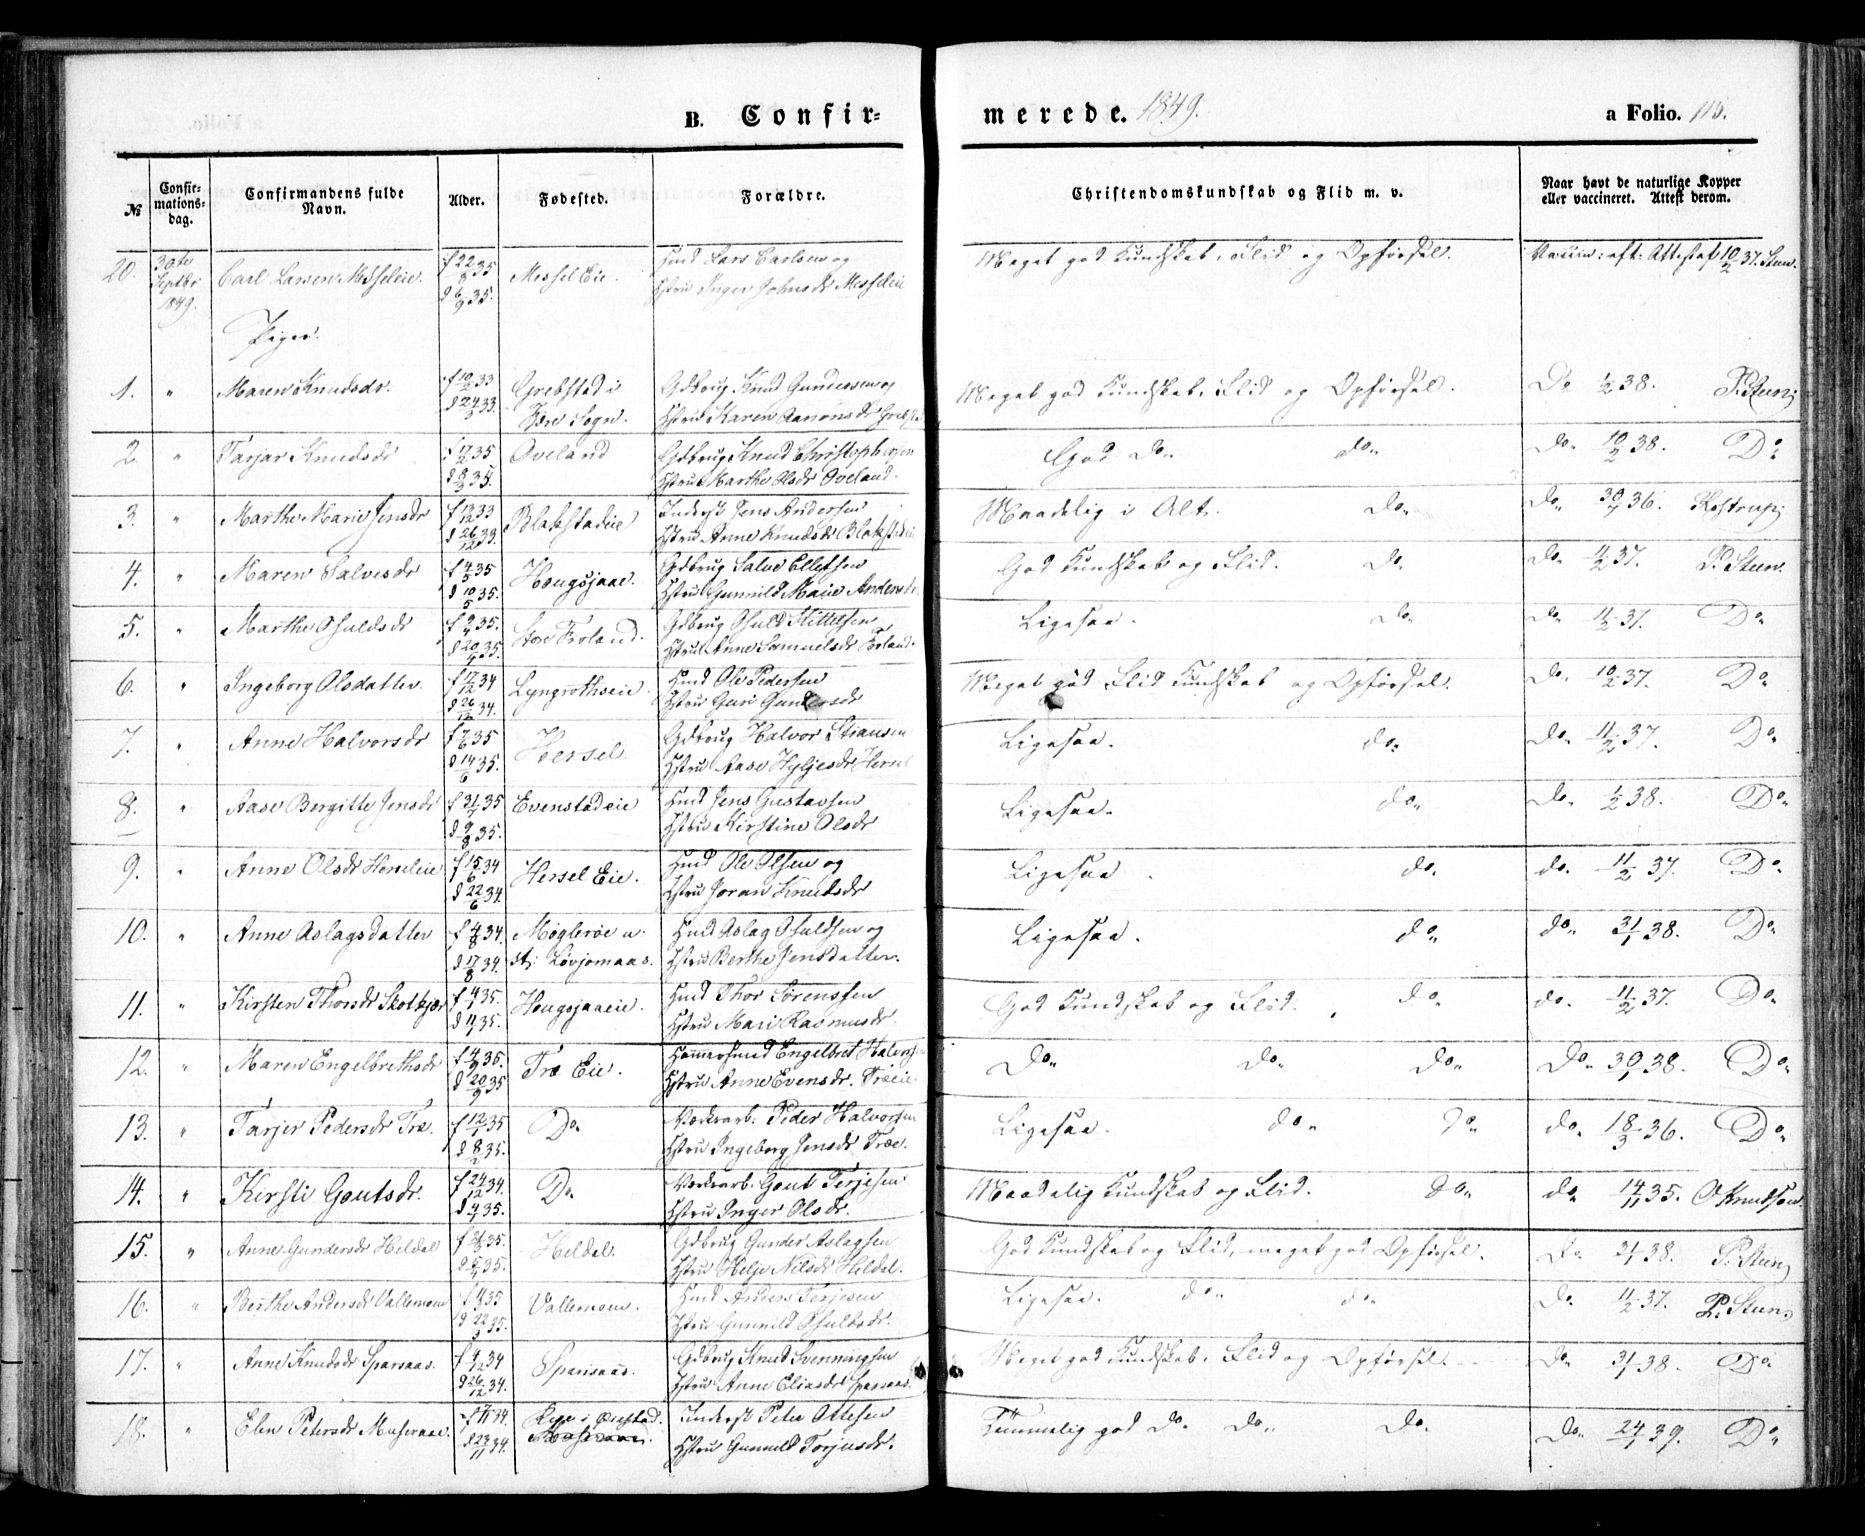 B. Confir-
merede. 1849.
a Folio. 115.
№
Confir-
mations-
dag.
Confirmandens fulde
Navn.
Alder.
Fødested.
Forældre.
Christendomskundskab og Flid m. v.
Naar havt de naturlige Kopper
eller vaccineret. Attest derom.
20. 30te Septbr 1849. Carl Larsen Messeleie. f 22/8 35 d 6/9 35. Messel Eie. Huusmd Lars Carlsen og Hstru Inger Johnsdr Messeleie Meget god Kundskab, Flid og Opførsel. Vaccin: eft: Attest af 10/2 37. Steen.
Piger.
1. " Maren Knudsdr. f 10/2 33 d 24/3 33. Grebstad i Fære Sogn. Gdbrug Knud Gundersen og Hstru Karen Aanonsdr Meget god Kundskab, Flid og Opførsel. Do 1/2 38. P. Steen
2. " Tarjar Knudsdr f 17/2 35 d 8/3 35. Oveland Gdbrug Knud Christophersen Hstru Marthe Olsdr Oveland. God do do Do 10/2 38. Do
3. " Marthe Marie Jensdr f 13/12 33 d 26/12 33 Blakstadeie Inderst Jens Andersen Hstru Anne Knudsdr Blakstadeie Maadelig i Alt. do Do 30/7 36. Kostrup
4. " Maren Salvesdr f 4/5 35 d 10/5 35. Hougsjaae. Gdbrug Salve Ellefsen Hstru Gunnild Marie Andersdr God Kundskab og Flid. do Do 11/2 37. P. Steen.
5. " Marthe Osuldsdr f 9/4 35. d 20/4 35. Store Froland. Gdbrug Osuld Kittelsen Hstru Anne Samuelsdr Froland. Ligesaa. do Do 11/2 37. Do
6. " Ingeborg Olsdatter. f 17/12 34 d 26/12 34. Lyngrothseie. Huusmd Ole Pedersen Hstru Guri Gundersdr Meget god Flid Kundskab og Opførsel. Do 10/2 37. Do
7. " Anne Halvorsdr f 7/6 35 d 14/6 35. Hersel. Gdbrug Halvor Stiansen Hstru Aase Hyljesdr Hersel Ligesaa. do. Do 11/2 37. Do
8. " Aase Bergitte Jensdr f 31/7 35 d 9/8 35. Evenstadeie Huusmd Jens Gustavsen Hstru Kirstine Olsdr Ligesaa. do. Do 1/2 38. Do
9. " Anne Olsdr Herseleie f 15/6 34 d 22/6 34. Hersel Eie. Huusmd Ole Olsen og Hstru Joran Knudsdr Ligesaa. do. do. 11/2 37. Do
10. " Anne Aslagsdatter f 4/8 34. d 17/8 34. Møglerøe u. st: Løvjomaas. Huusmd Aslag Osuldsen og Hstru Berthe Jensdatter. Ligesaa. do do 31/1 38. Do
11. " Kirsten Thorsdr Skotkjær f 4/1 35. d 11/1 35. Hougsjaaeie. Huusmd Thor Sørenssen Hstru Mari Rasmusdr. God Kundskab og Flid. do do. 11/2 37. Do
12. " Maren Engelbrethsdr f 4/9 35. d 20/9 35 Træ Eie. Hammersmed Engelbret Halvorsen Hstru Anne Evensdr. Træeie. Do do do Do 30/1 38. Do
13. " Tarjer Pedersdr Træ. f 12/1 35 d 8/2 35. Do Værksarb. Peder Halvorsen Hstru Ingeborg Jensdr Træe. Ligesaa. do do do 18/3 36. Do
14. " Kirsti Goutsdr. f 24/12 34. d 4/1 35. Do Værksarb. Gout Terjesen Hstru Inger Olsdr. Maadelig Kundskab og Flid. do do 14/11 35. O Knudsen
15. " Anne Gundersdr Heldal 35. 35. Heldal. Gdbrug Gunder Aslagsen Hstru Helje Nilsdr Heldal. God Kundskab og Flid, meget god Opførsel. Do 31/1 38. P. Steen
16. " Berthe Andersdr Vallemoen f 4/3 35 d 22/3 35. Vallemoen. Huusmd Anders Terjesen Hstru Gunnild Osuldsdr. Ligesaa. do do Do 11/2 37. P. Steen
17. " Anne Knudsdr Sparsaas. f 4/12 34 d 26/12 34. Sparsaas. Gdbrug Knud Svenningsen Hstru Anne Eliasdr Sparsaas. Meget god Kundskab, Flid og Opførsel. Do 31/1 38. Do
18. " Elen Petersdr Maseraae. f 7/11 34. d 23/11 34. i Øiestad. Inderst Peter Ottesen Hstru Gunnild Torjusdr. Temmelig god do do do Do 24/1 39. Do